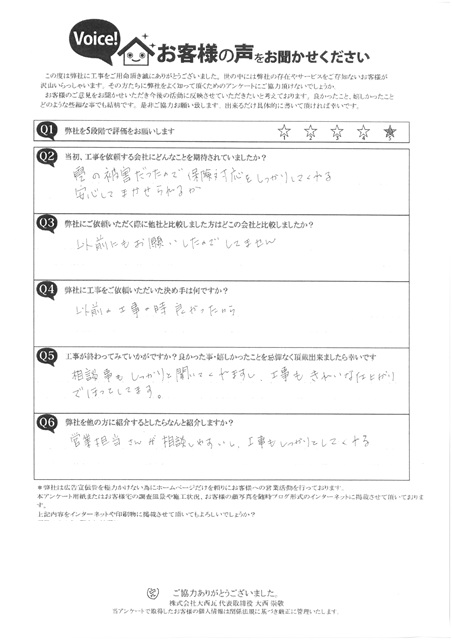 Voice!
お客様の声をお聞かせください
この度は弊社に工事をご用命頂き誠にありがとうございました。世の中には弊社の存在やサービスをご存知ないお客様が
沢山いらっしゃいます。その方たちに弊社をよく知って頂くためのアンケートにご協力頂けないでしょうか。
お客様のご意見をお聞かせいただき今後の活動に反映させていただきたいと考えております。良かったこと、嬉しかったこと
どのような些細な事でも結構です。是非ご協力お願い致します。出来るだけ具体的に書いて頂ければ幸いです。
Q1 弊社を5段階で評価をお願いします
1 2 3 4 5
Q2 当初、工事を依頼する会社にどんなことを期待されていましたか?
雹の被害だったので保険対応をしっかりしてくれる
安心してまかせられるか
Q3 弊社にご依頼いただく際に他社と比較しました方はどこの会社と比較しましたか?
以前にもお願いしたのでしてません
Q4 弊社に工事をご依頼いただいた決め手は何ですか?
以前の工事の時良かったから
Q5 工事が終わってみていかがですか?良かった事・嬉しかったことを忌憚なく頂戴出来ましたら幸いです
相談事もしっかりと聞いてくれますし、工事もきれいな仕上がり
でほっとしてます。
Q6 弊社を他の方に紹介するとしたらなんと紹介しますか?
営業担当さんが相談しやすいし、工事もしっかりとしてくれる
*弊社は広告宣伝費を極力かけない為にホームページだけを頼りにお客様への営業活動を行っております。
本アンケート用紙またはお客様宅の調査風景や施工状況、お客様の顔写真を随時ブログ形式のインターネットに掲載させて頂いておりま
す。
上記内容をインターネットや印刷物に掲載させて頂いてもよろしいでしょうか?
ご協力ありがとうございました。
株式会社大西瓦 代表取締役 大西 崇敬
当アンケートで取得したお客様の個人情報は関係法規に基づき厳正に管理いたします。